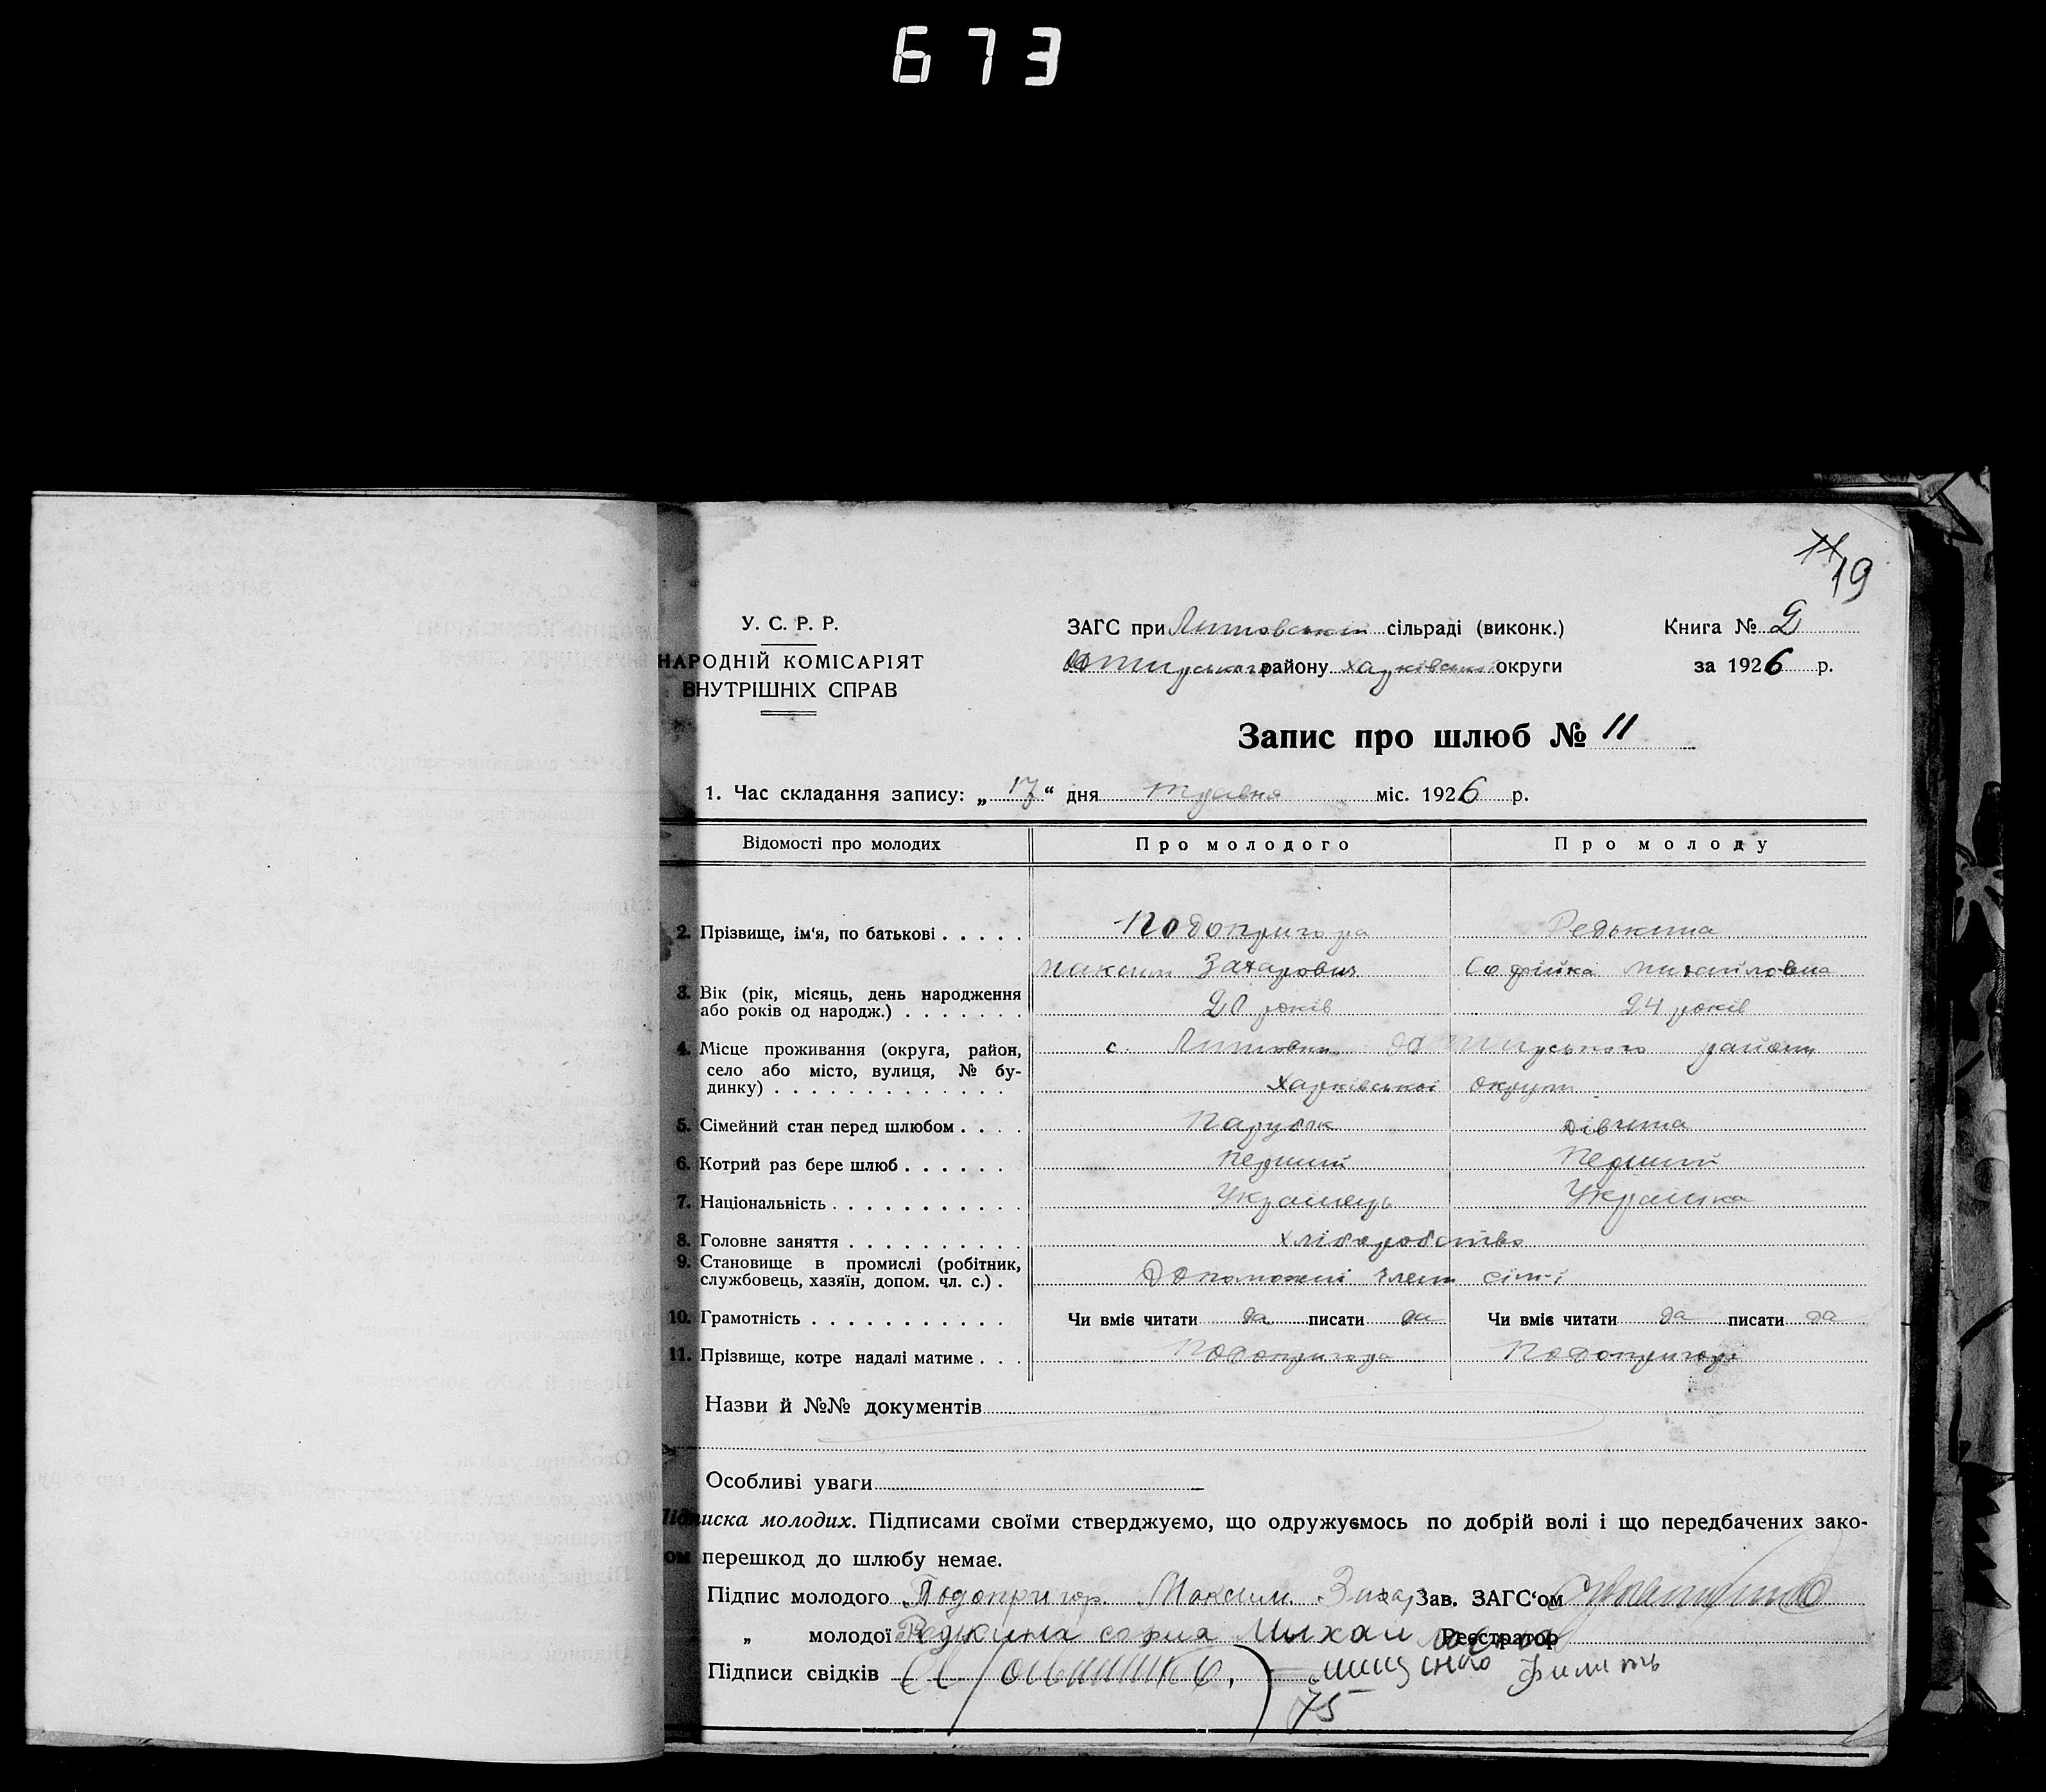 673
11
19
У. С. Р. Р.
НАРОДНІЙ КОМІСАРІЯТ
ВНУТРІШНІХ СПРАВ
ЗАГС при Литовській сільраді (виконк.)
району Харківської округи
Книга № 2
за 1926 р.
Запис про шлюб № 11
1. Час складання запису: „17“ дня травня міс. 1926 р.
Відомості про молодих
Про молодого
Про молоду
2. Прізвище, ім'я, по батькові
Подопригора
Редькина
Максим Захарович
Софійка Михайловна
3. Вік (рік, місяць, день народження
або років од народж.)
20 років
24 років
4. Місце проживання (округа, район,
село або місто, вулиця, № бу-
динку)
с. району
Харківської округи
5. Сімейний стан перед шлюбом
Парубок
дівчина
6. Котрий раз бере шлюб
Перший
Перший
7. Національність
Українець
Українка
8. Головне заняття
хліборобство
9. Становище в промислі (робітник,
службовець, хазяїн, допом. чл. с.)
Допоможні член сім-ї
10. Грамотність
Чи вміє читати да писати да
Чи вміє читати да писати да
11. Прізвище, котре надалі матиме
Подопригора
Подопригора
Назви й №№ документів
Особливі уваги
Підписка молодих. Підписами своїми стверджуємо, що одружуємось по добрій волі і що передбачених зако-
ом перешкод до шлюбу немає.
Підпис молодого Подопригор Максим Захар Зав. ЗАГС'ом
„ молодої Редкина софия Михайловна Реєстратор
Підписи свідків
75